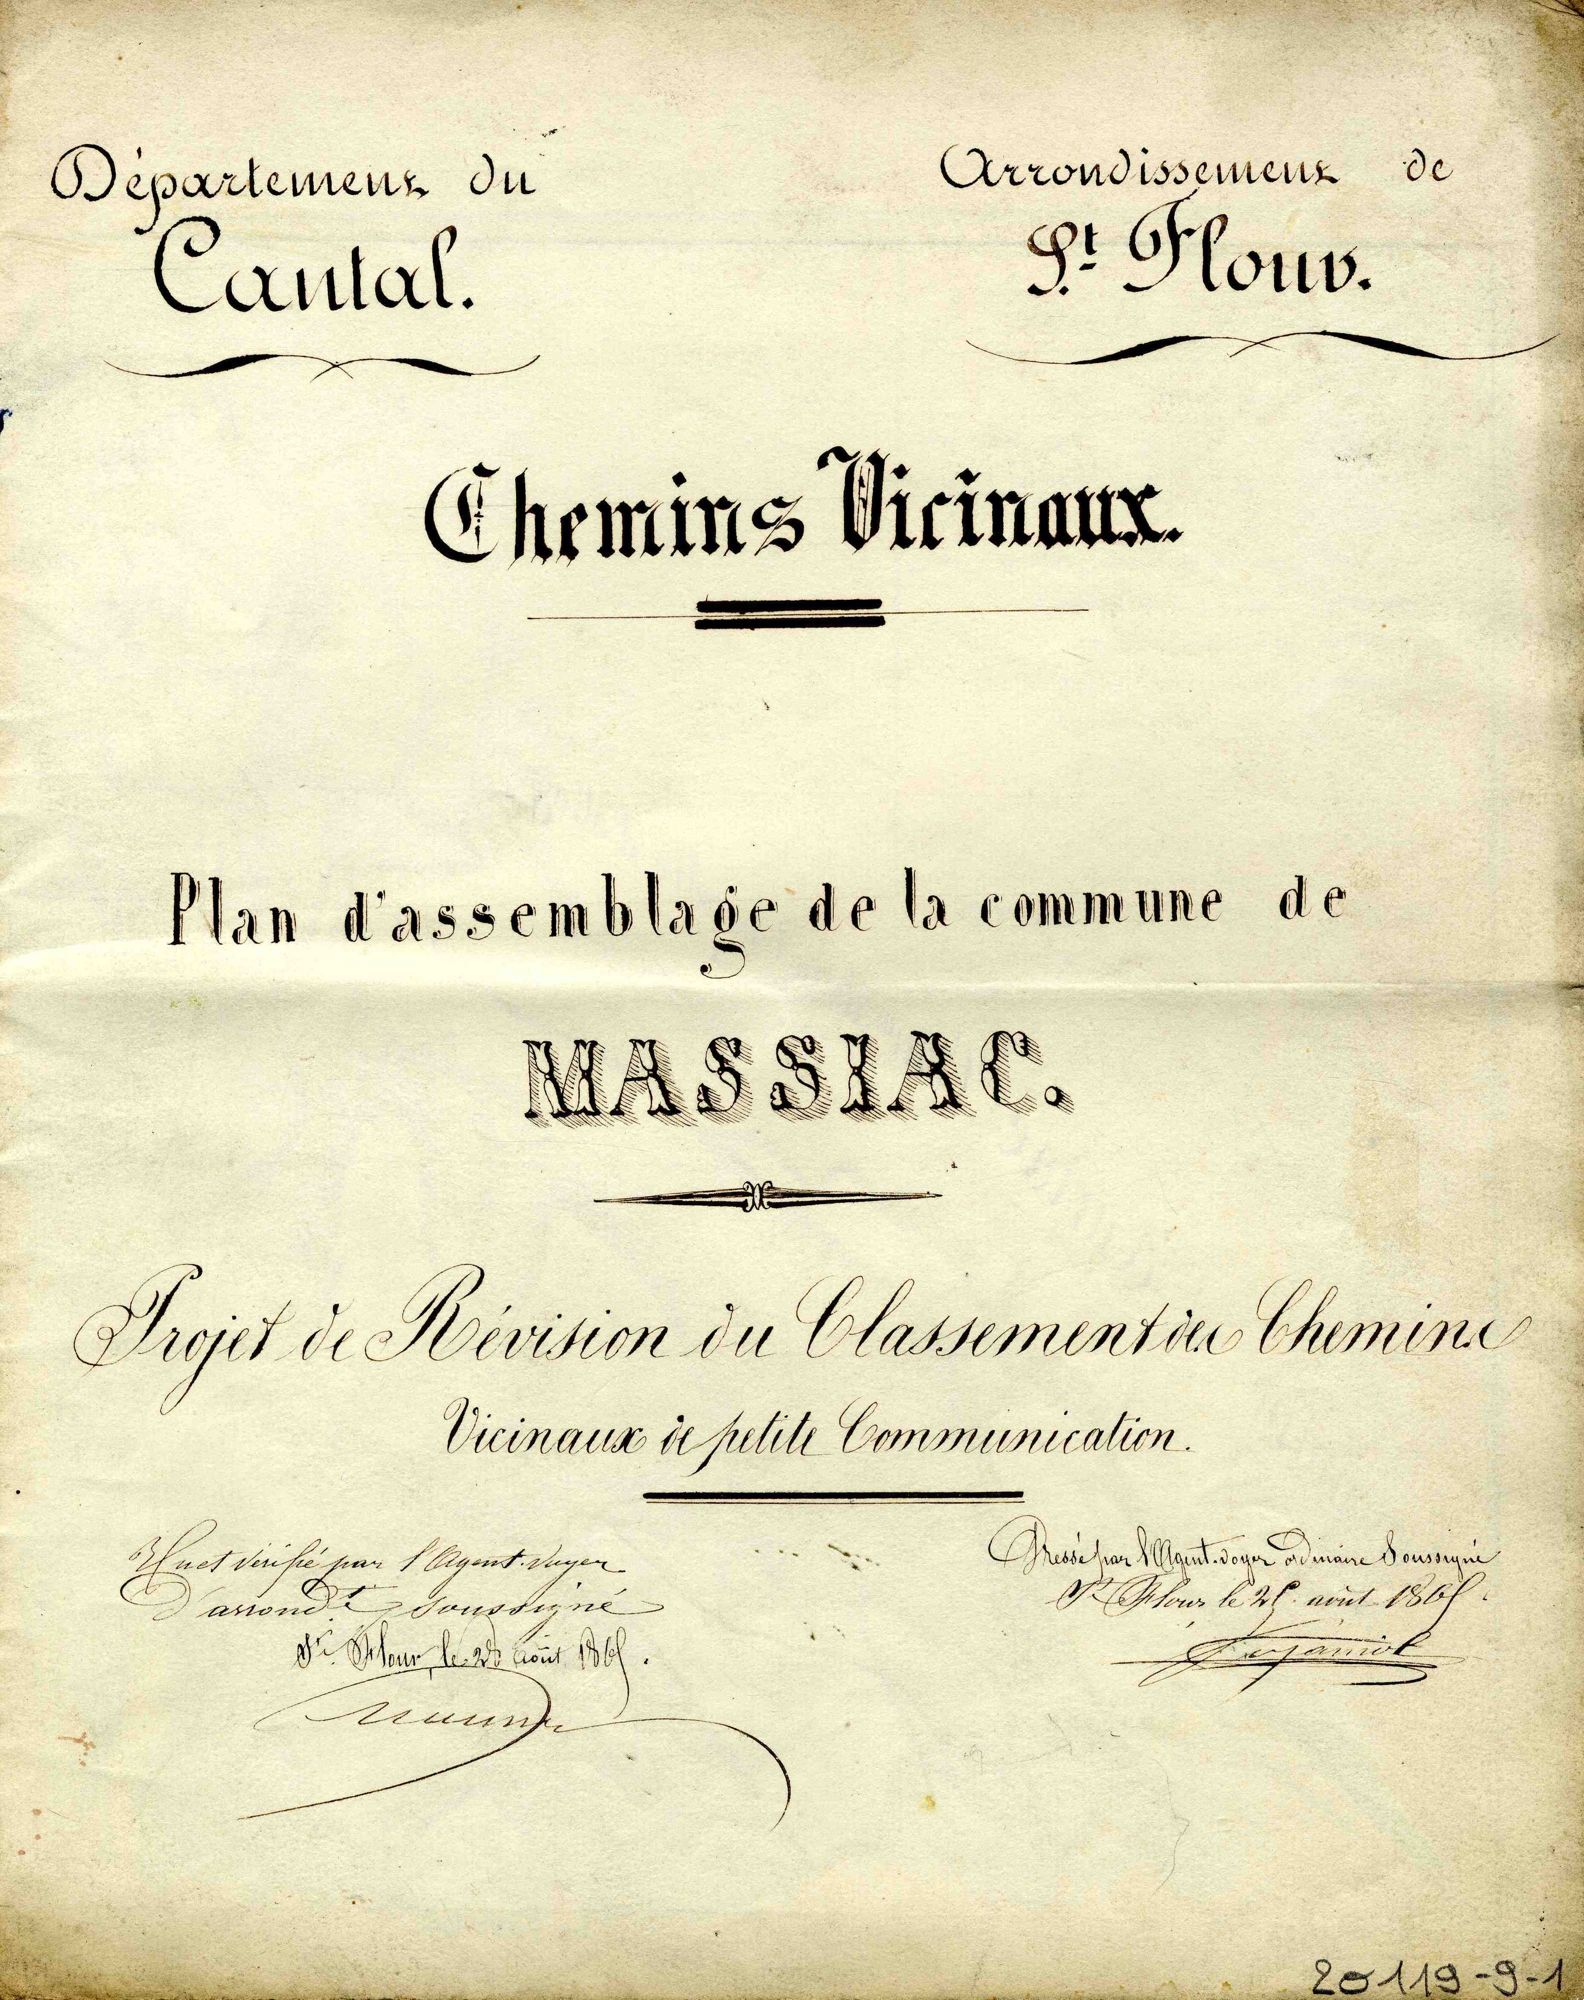 Département du
Cantal.
Arrondissement de
St Flour.
Chemins Vicinaux.
Plan d'assemblage de la commune de
MASSIAC.
Projet de Révision du Classement des Chemins
Vicinaux de petite Communication.
Vu et vérifié par l'Agent-Voyer
d'arrondt soussigné
St Flour, le 28 août 1865.
Dressé par l'Agent-voyer ordinaire Soussigné
St Flour le 25 août 1865.
20119-9-1